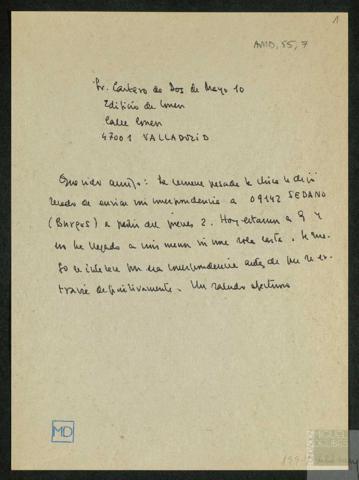 1
AMD, 55, 7
Sr. Cartero de Dos de Mayo 10
Edificio de Correos
Calle Correos
47001 VALLADOLID
Querido amigo: La semana pasada le dije
de enviar mi correspondencia a 09142 SEDANO
(Burgos) a partir del jueves 2. Hoy estamos a 9 y
no ha llegado a mis manos ni una sola carta. Le rue-
go se interese por esa correspondencia antes de que se ex-
travíe definitivamente. Un saludo afectuoso
MD
FUNDACIÓN
MIGUEL
DELIBES